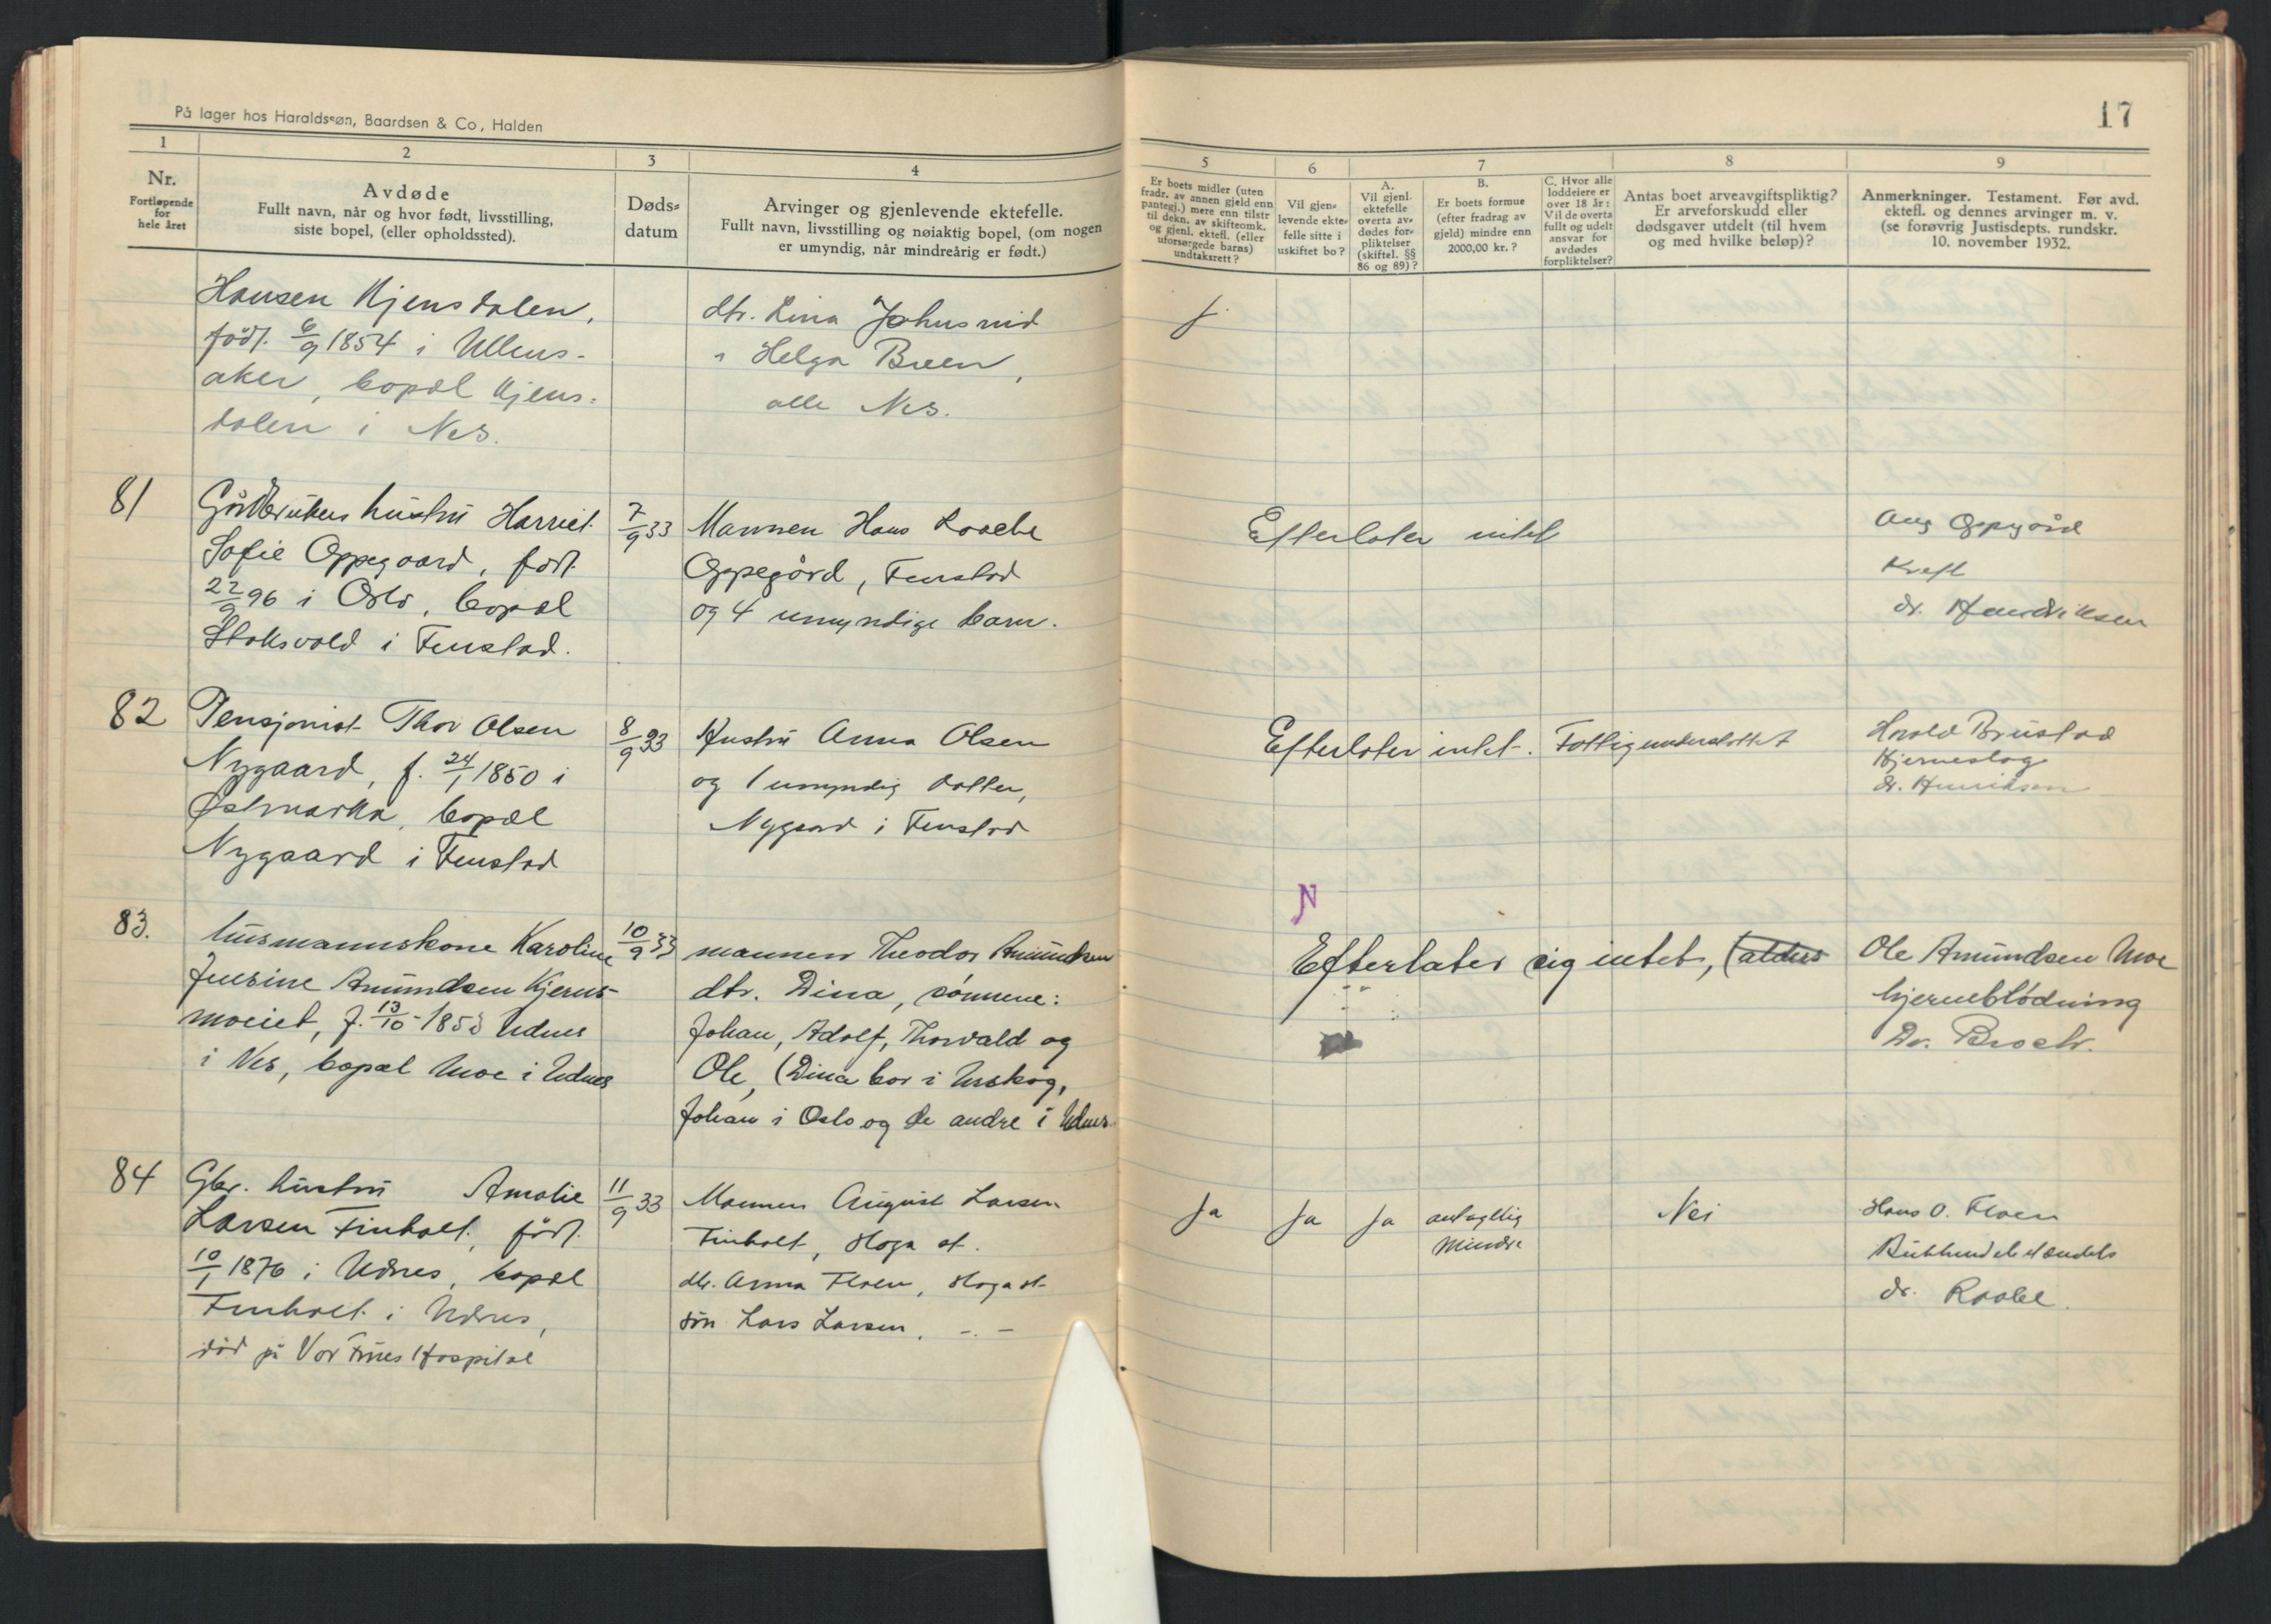 På lager hos Haraldssøn, Baardsen & Co, Halden
17
1
2
3
4
5
6
7
8
9
Nr.
Fortløpende
for
hele året
Avdøde
Fullt navn, når og hvor født, livsstilling,
siste bopel, (eller opholdssted).
Døds-
datum
Arvinger og gjenlevende ektefelle.
Fullt navn, livsstilling og nøiaktig bopel, (om nogen
er umyndig, når mindreårig er født.)
Er boets midler (uten
fradr. av annen gjeld enn
pantegj.) mere enn tilstr
til dekn. av skifteomk.
og gjenl. ektefl. (eller
uforsørgede barns)
undtaksrett?
Vil gjen-
levende ekte-
felle sitte i
uskiftet bo?
A.
Vil gjenl.
ektefelle
overta av-
dødes for-
pliktelser
(skiftel. §§
86 og 89)?
B.
Er boets formue
(efter fradrag av
gjeld) mindre enn
2000,00 kr.?
C. Hvor alle
loddeiere er
over 18 år:
Vil de overta
fullt og udelt
ansvar for
avdødes
forpliktelser?
Antas boet arveavgiftspliktig?
Er arveforskudd eller
dødsgaver utdelt (til hvem
og med hvilke beløp)?
Anmerkninger. Testament. Før avd.
ektefl. og dennes arvinger m. v.
(se forøvrig Justisdepts. rundskr.
10. november 1932.
Hansen Kjensdalen,
født 6/9 1854 i Ullens-
aker, bopæl Kjens-
dalen i Nes.
dtr. Lina Johnsrud
" Helga Breen,
alle Nes.
81
Gårdbrukers hustru Harriet
Sofie Oppegaard, født
22/9 96 i Oslo, bopæl
Stoksvold i Fenstad.
7/9 33
Mannen Hans Raabe
Oppegård, Fenstad
og 4 umyndige barn.
Efterlater intet
Aug Oppgård
Kreft
dr. Hendriksen
82
Pensjonist Thor Olsen
Nygaard, f. 24/1 1850 i
Østmarka, bopæl
Nygaard i Fenstad
8/9 33
Hustru Anna Olsen
og 1 umyndig datter,
Nygaard i Fenstad
Efterlater intet. Fattigunderstøttet
Harald Brustad
Hjerneslag
dr. Henriksen
83.
husmannskone Karoline
Jensine Amundsen Kjerns-
moeiet, f. 13/10 - 1853 Udnes
i Nes, bopæl Moe i Udnes
10/9 33
mannen Theodor Amundsen
dtr. Dina, sønnene:
Johan, Adolf, Thorvald og
Ole, (Dina bor i Urskog,
Johan i Oslo og de andre i Udnes
N
Efterlater sig intet,
Ole Amundsen Moe
hjerneblødning
Dr. Broch.
84
Gbr. hustru Amalie
Larsen Finholt, født
10/1 1876 i Udnes, bopæl
Finholt i Udnes,
død på Vor Frues Hospital
11/9 33
Mannen August Larsen
Finholt, Haga st.
dtr. Anna Floen, Haga st
søn Lars Larsen, -.-
Ja
Ja
Ja
antagelig
mindre
Nei
Hans O. Floen
dr. Raabe.